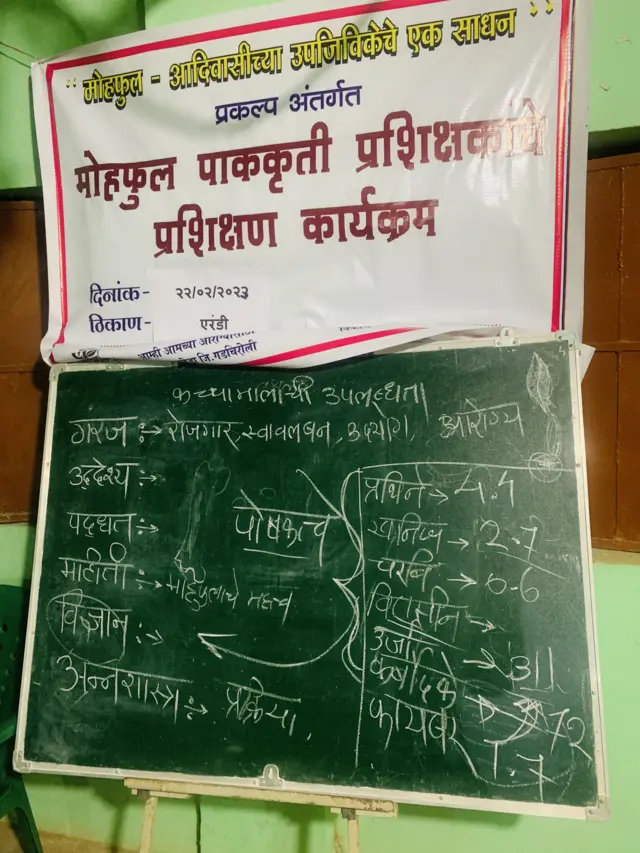 “मोहफुल - आदिवासीच्या उपजिविकेचे एक साधन”
प्रकल्प अंतर्गत
मोहफुल पाककृती प्रशिक्षकांचे
प्रशिक्षण कार्यक्रम
दिनांक- २२/०२/२०२३
ठिकाण- एरंडी
आम्ही आमच्या आरोग्यासाठी
जि.गडचिरोली
कच्चामालाची उपलब्धता
गरज :→ रोजगार, स्वावलंबन, उद्योग, आरोग्य
उद्देश्य :→
पद्धत :→
माहीती :→ मोहफुलाचे महत्व
विज्ञान :→
अन्नशास्त्र :→ प्रक्रिया.
पोषकतत्वे
प्रथिने →
खनिज → 2.7
चरबी → 0.6
उर्जा → 311
कर्बोदके → 72
फायबर 1.7